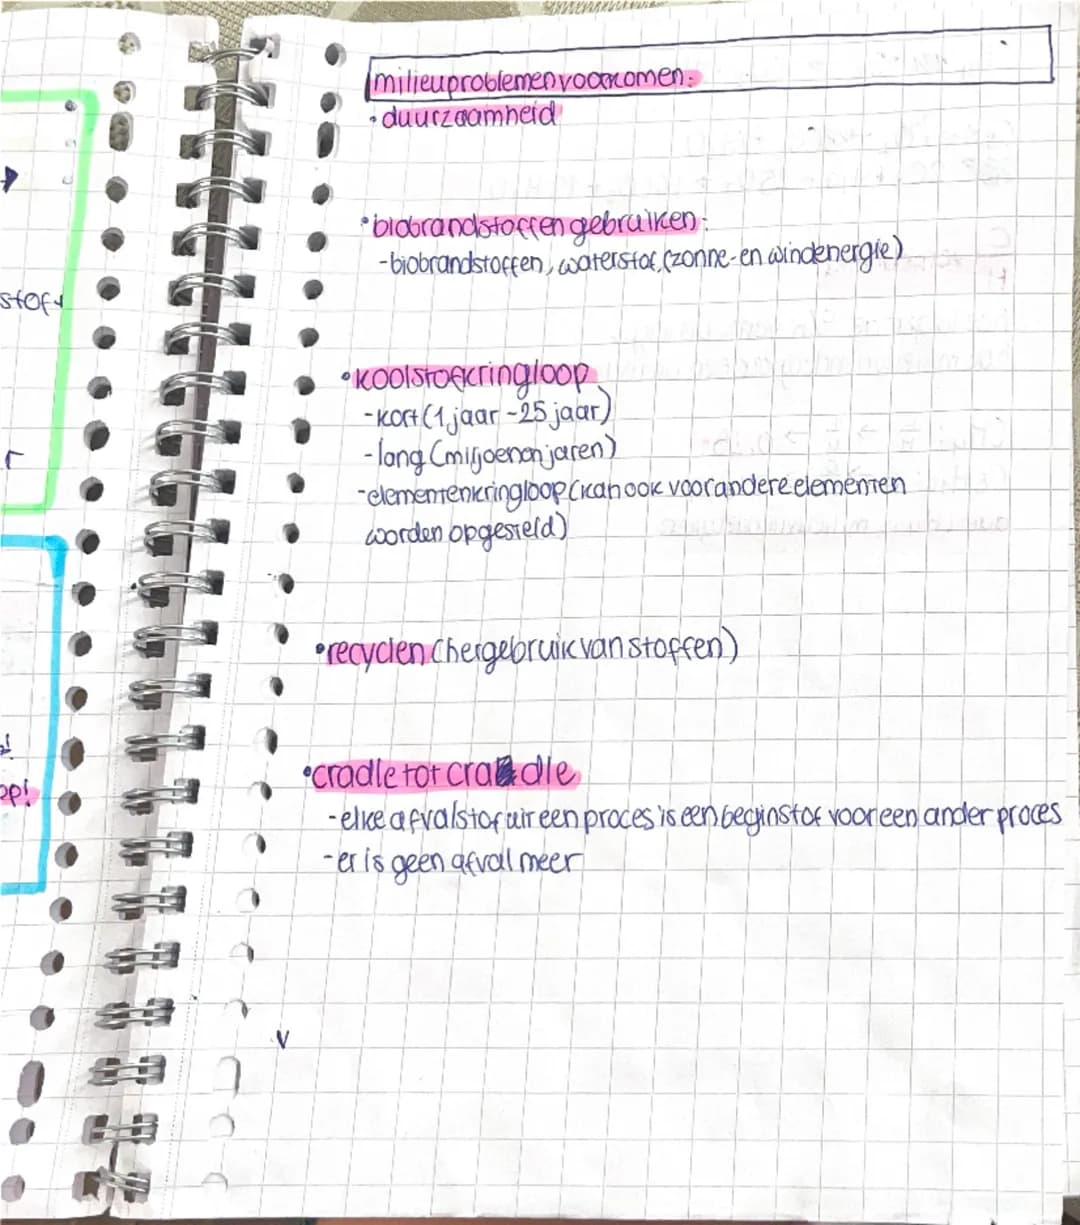 milieuproblemen voorkomen:
• duurzaamheid
• biobrandstoffen gebruiken:
- biobrandstoffen, waterstof, (zonne- en windenergie)
stof
• koolstofkringloop
- kort (1 jaar - 25 jaar)
- lang (miljoenen jaren)
- elementenkringloop (kan ook voor andere elementen
worden opgesteld)
r
• recyclen (hergebruik van stoffen)
• cradle tot cradle
op!
- elke afvalstof uit een proces is een beginstof voor een ander proces
- er is geen afval meer
v